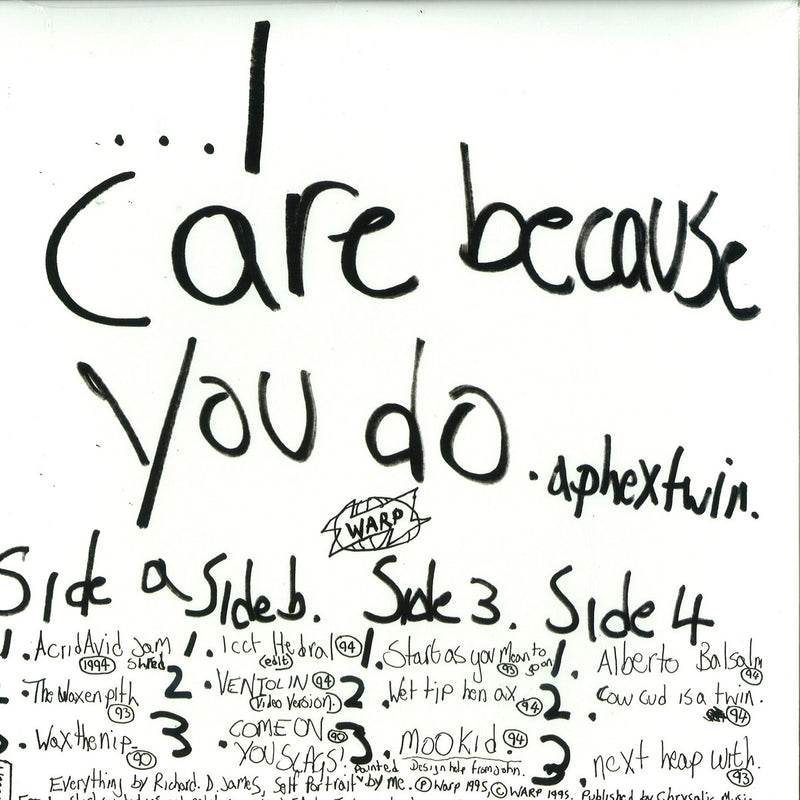 ...I
Care because
You do.
.aphextwin.
WARP
Side a
1. AcridAvid Jam
1994 Shred
The Waxen pith
93
Wax the nip
90
Side b.
1. Icct Hedral 94
(edit)
2. VENTOLIN 94
(Video Version.)
3 COME ON 90
YOU SLAGS!
Side 3.
1. Start as you Mean to
93 go on
2 .Wet tip hen ax. 94
3. MOOKid. 94
Side 4
1. Alberto Balsalm
94
2. Cow cud is a twin.
94
3 .next heap with.
93
Everything by Richard. D. James, Self Portrait by me. Ⓟ Warp 1995, © WARP 1995. Published by Chrysalis Music
Painted
Design help from john.